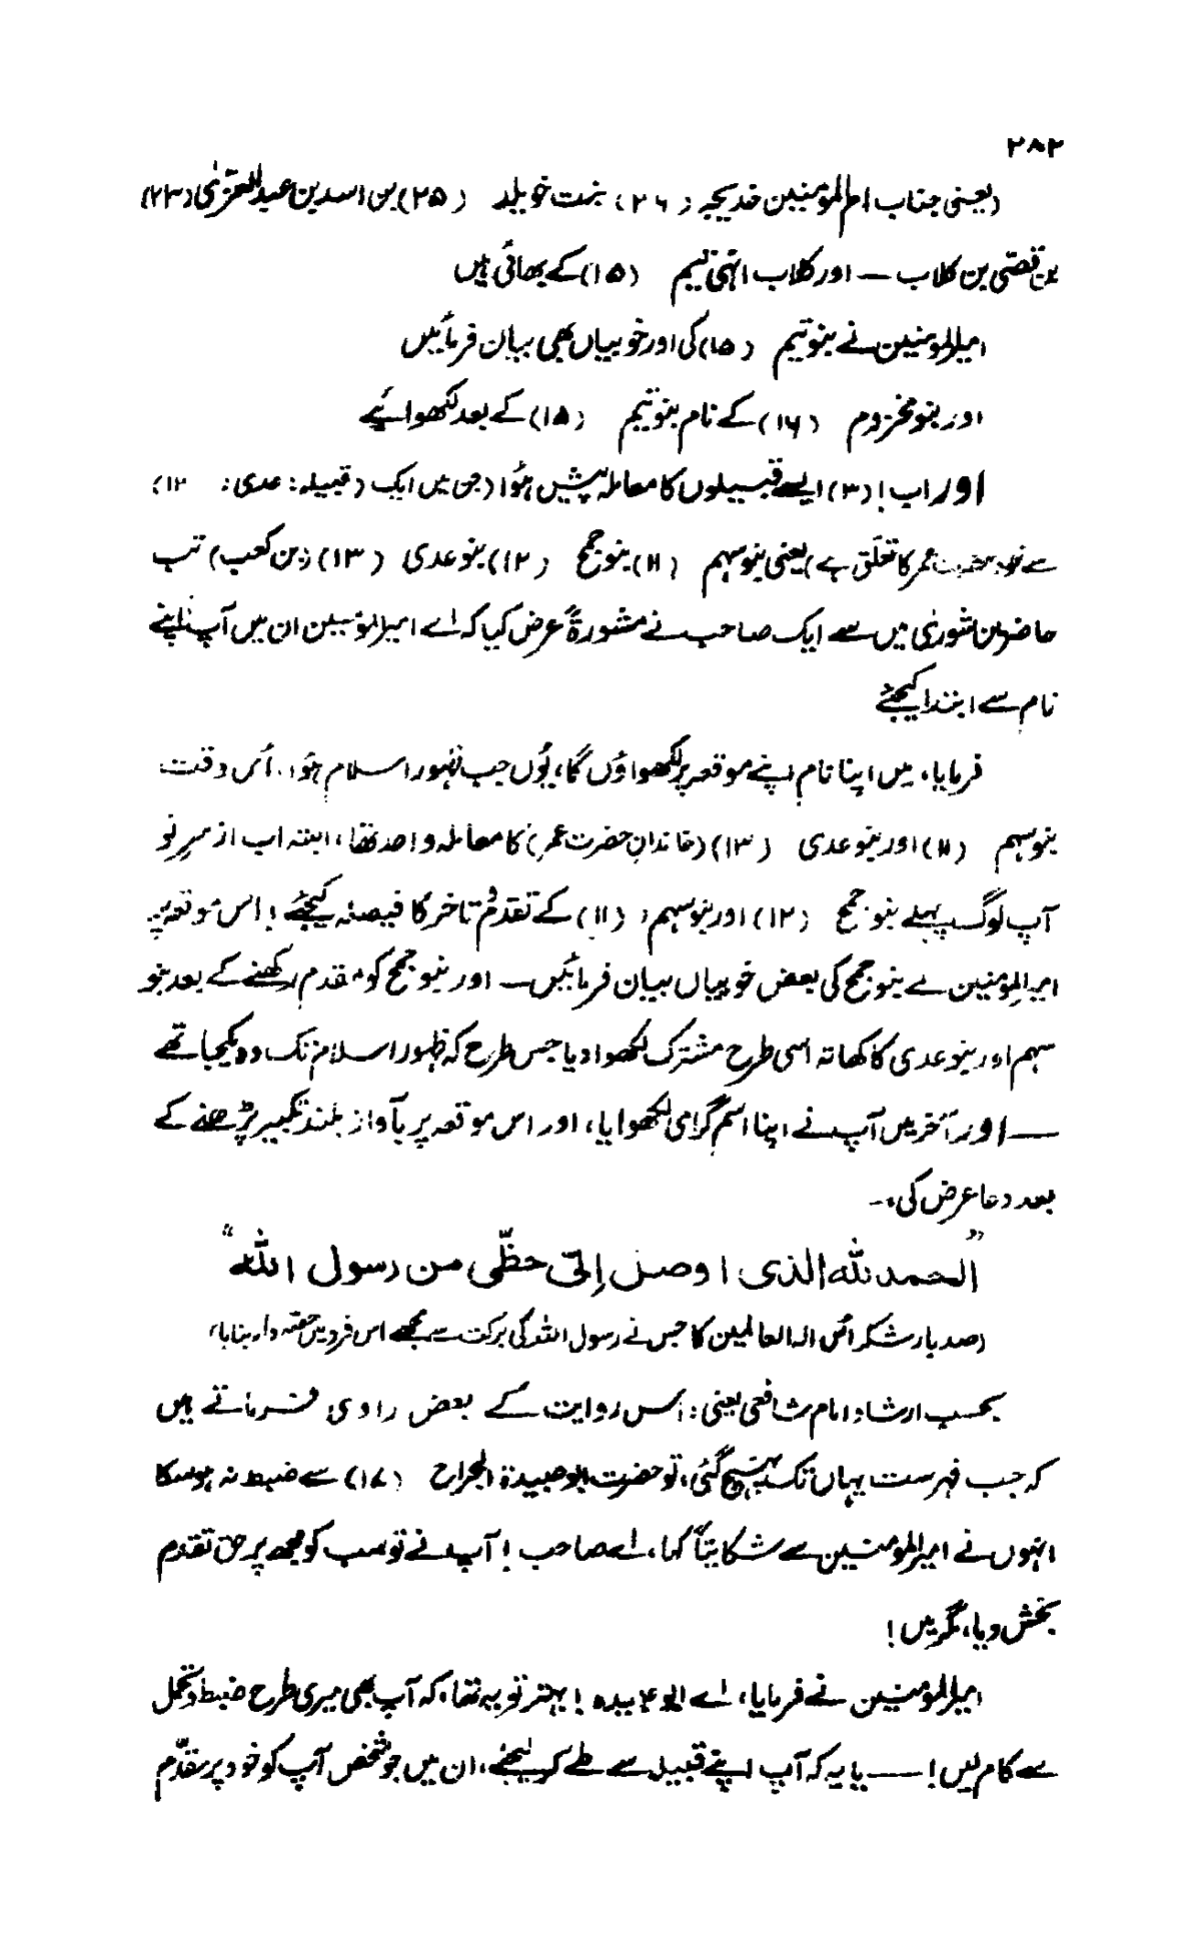 ۲۸۲
(یعنی جناب ام المؤمنین خدیجہ (۲۶) بنت خویلد (۲۵) بن اسد بن عبدالعزّٰی (۲۳)
بن قصّی بن کلاب — اور کلاب انہی تیم (۱۵) کے بھائی ہیں
امیرالمومنین نے بنو تیم (۱۵) کی اور خوبیاں بھی بیان فرمائیں
اور بنو مخزوم (۱۶) کے نام بنو تیم (۱۵) کے بعد لکھوائے
اور اب! (۳) ایسے قبیلوں کا معاملہ پیش ہؤا (جن میں ایک (قبیلہ: عدی: ۱۲)
سے خود حضرت عمر کا تعلّق ہے) یعنی بنو سہم (۱۱) بنو جمح (۱۲) بنو عدی (۱۳) (بن کعب) تب
حاضرین شوریٰ میں سے ایک صاحب نے مشورۃً عرض کیا کہ اے امیرالمؤمنین ان میں آپ اپنے
نام سے ابتدا کیجئے
فرمایا، میں اپنا نام اپنے موقعہ پر لکھواؤں گا، یُوں جب ظہور اسلام ہؤا، اُس وقت
بنو سہم (۱۱) اور بنو عدی (۱۳) (خاندانِ حضرت عمرؓ) کا معاملہ واحد تھا، البتہ اب از سرِ نو
آپ لوگ پہلے بنو جمح (۱۲) اور بنو سہم: (۱۱) کے تقدم و تاخر کا فیصلہ کیجئے! اس موقعہ پر
امیرالمومنین نے بنو جمح کی بعض خوبیاں بیان فرمائیں — اور بنو جمح کو مقدم رکھنے کے بعد بنو
سہم اور بنو عدی کا کھاتہ اسی طرح مشترک لکھوا دیا جس طرح کہ ظہور اسلام تک وہ یکجا تھے
— اور آخر میں آپ نے اپنا اسم گرامی لکھوایا، اور اس موقعہ پر بآواز بلند تکبیر پڑھنے کے
بعد دعا عرض کی:-
"الحمد للہ الذی اوصل اِلیّ حظّی من رسول اللہ"
(صد بار شکر اُس الہ العالمین کا جس نے رسول اللہ کی برکت سے مجھے اس فرد میں حصّہ دار بنایا)
بحسب ارشاد امام شافعی یعنی: اس روایت کے بعض راوی فرماتے ہیں
کہ جب فہرست یہاں تک پہنچ گئی، تو حضرت ابو عبیدۃ الجراح (۱۷) سے ضبط نہ ہو سکا
انہوں نے امیرالمؤمنین سے شکایتاً کہا، اے صاحب! آپ نے تو سب کو مجھ پر حق تقدم
بخش دیا، مگر میں!
امیرالمؤمنین نے فرمایا، اے ابو عبیدہ! بہتر تو یہ تھا، کہ آپ بھی میری طرح ضبط و تحمل
سے کام لیں! — یا یہ کہ آپ اپنے قبیلہ سے طے کر لیجئے، ان میں جو شخص آپ کو خود پر مقدّم